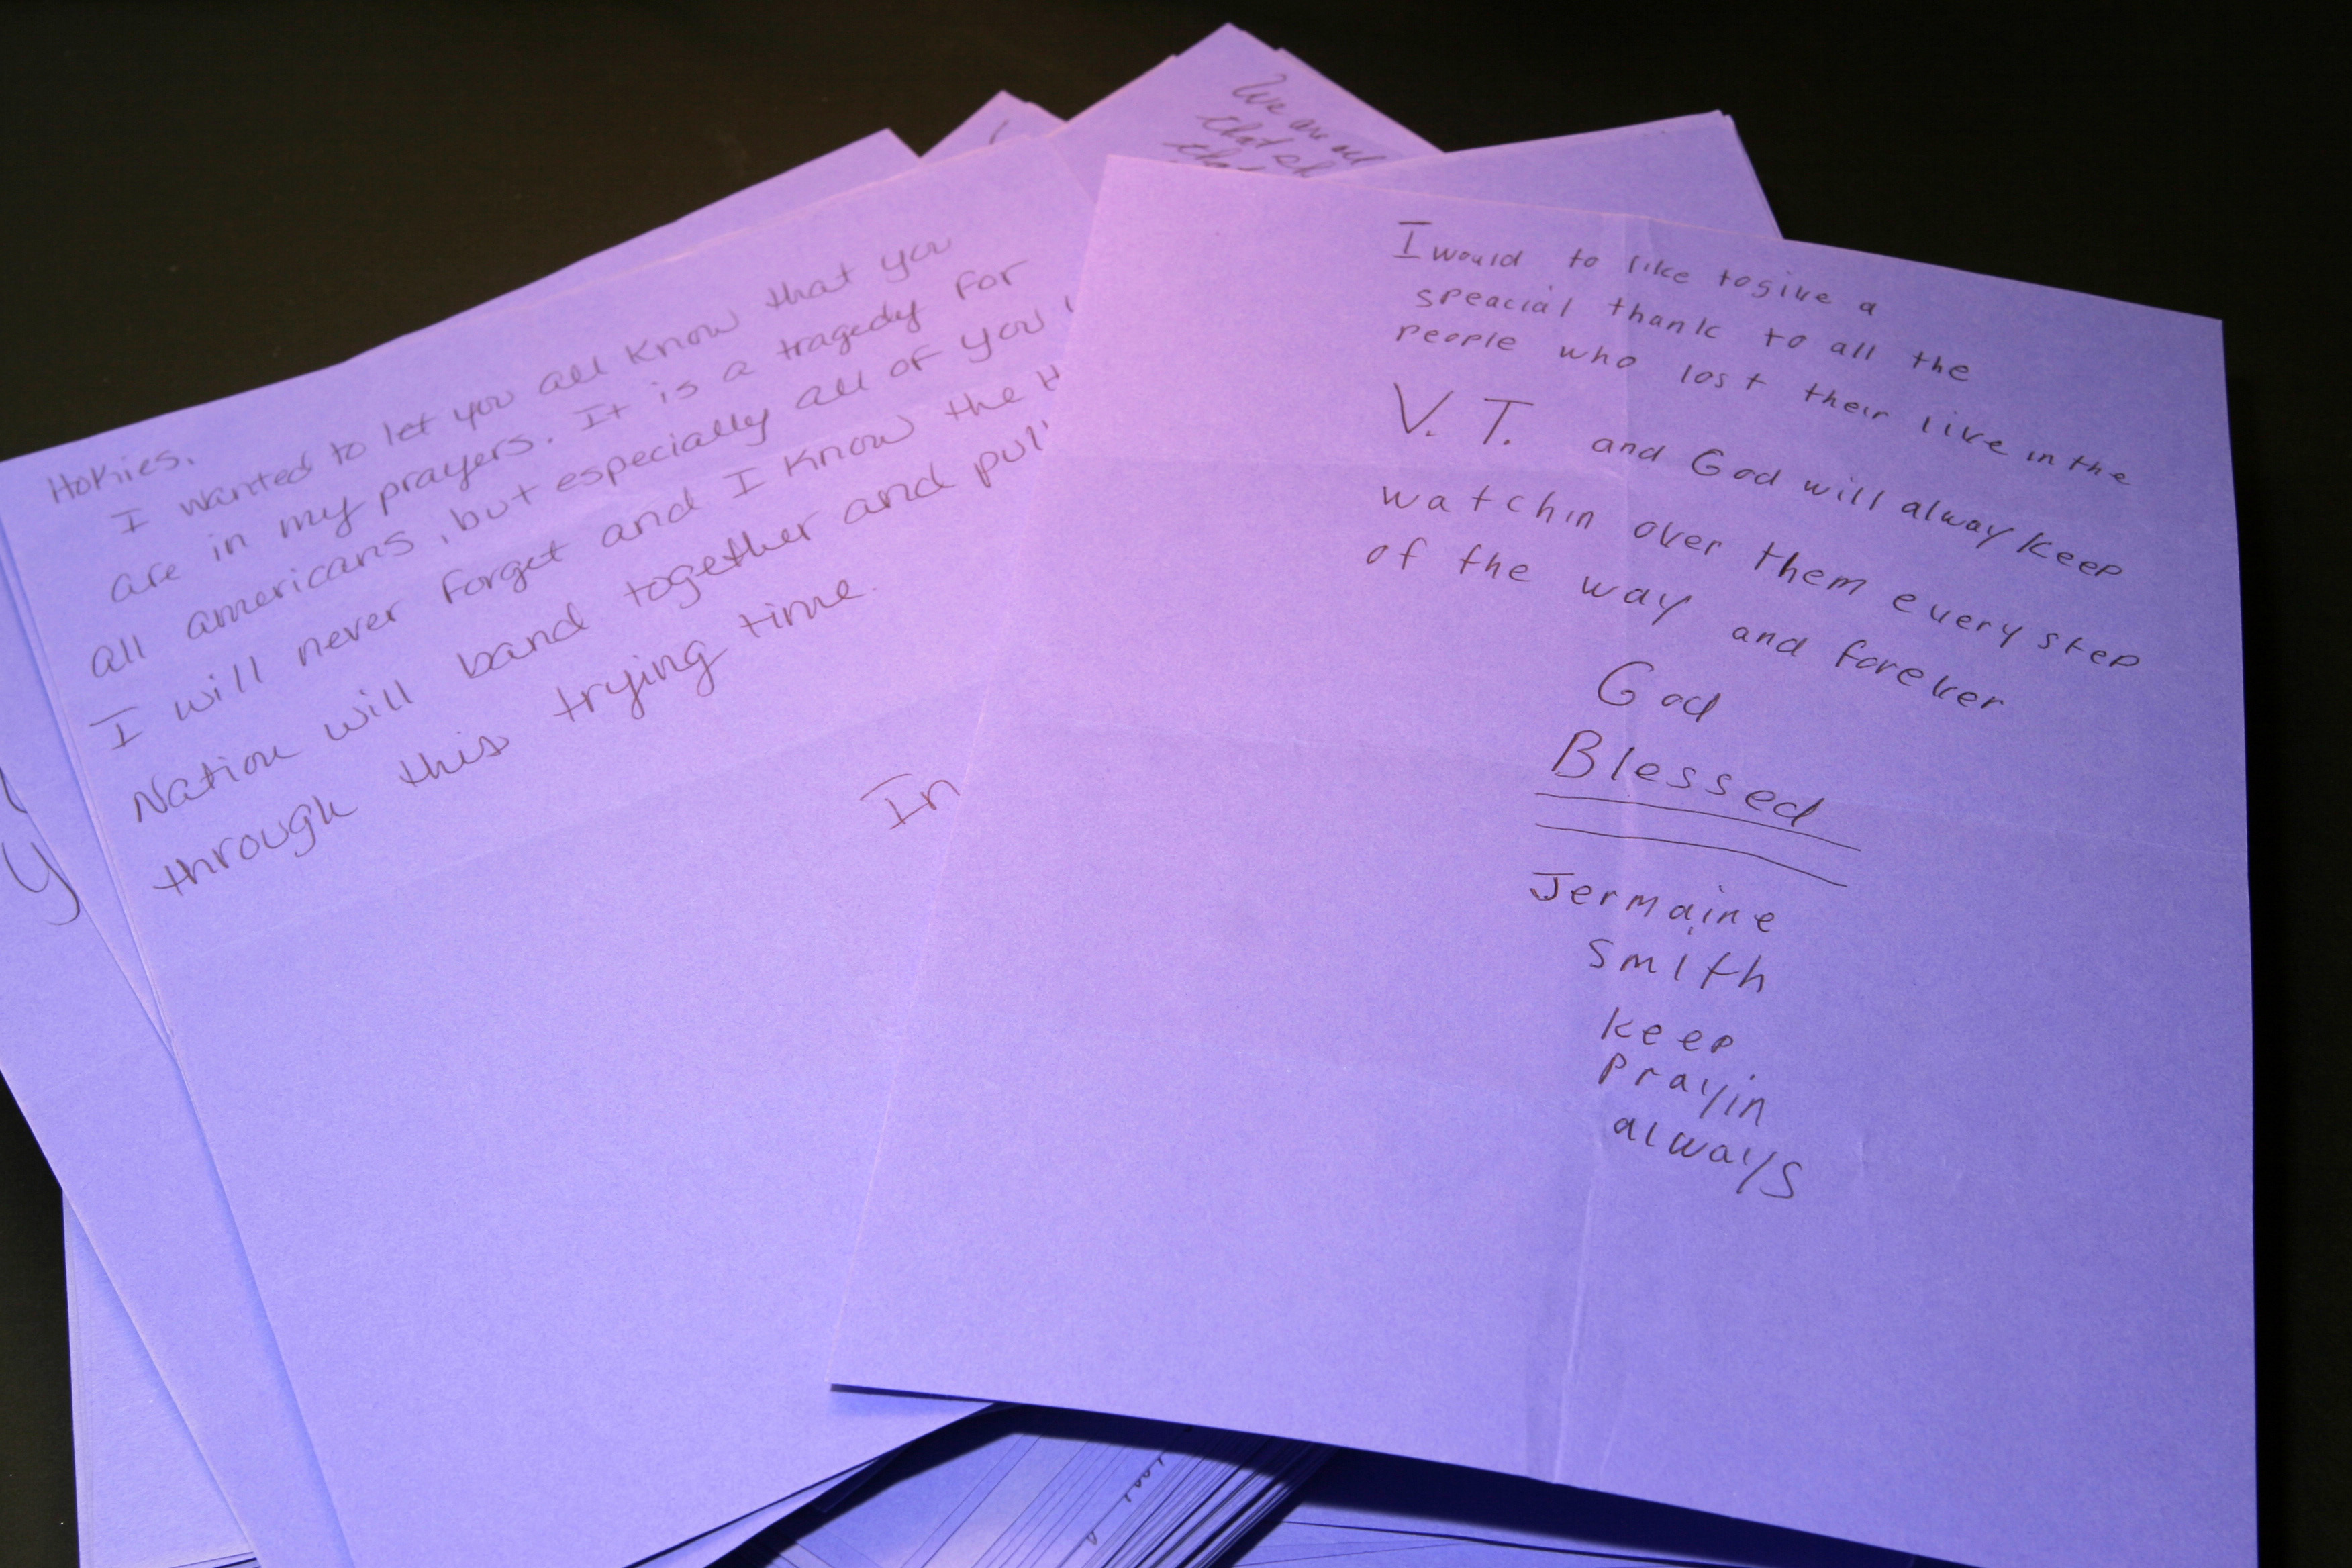 Hokies,
I wanted to let you all know that you
are in my prayers. It is a tragedy for
all americans, but especially all of you
I will never forget and I know the H
Nation will band together and pull
through this trying time.
In
We are all
that
I would to like to give a
speacial thank to all the
people who lost their live in the
V. T. and God will alway keep
watchin over them every step
of the way and forever
God
Blessed
Jermaine
Smith
keep
Prayin
always
y